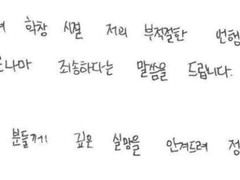 학창 시절 저의 부적절한 언행
나마 죄송하다는 말씀을 드립니다.
분들께 깊은 실망을 안겨드려